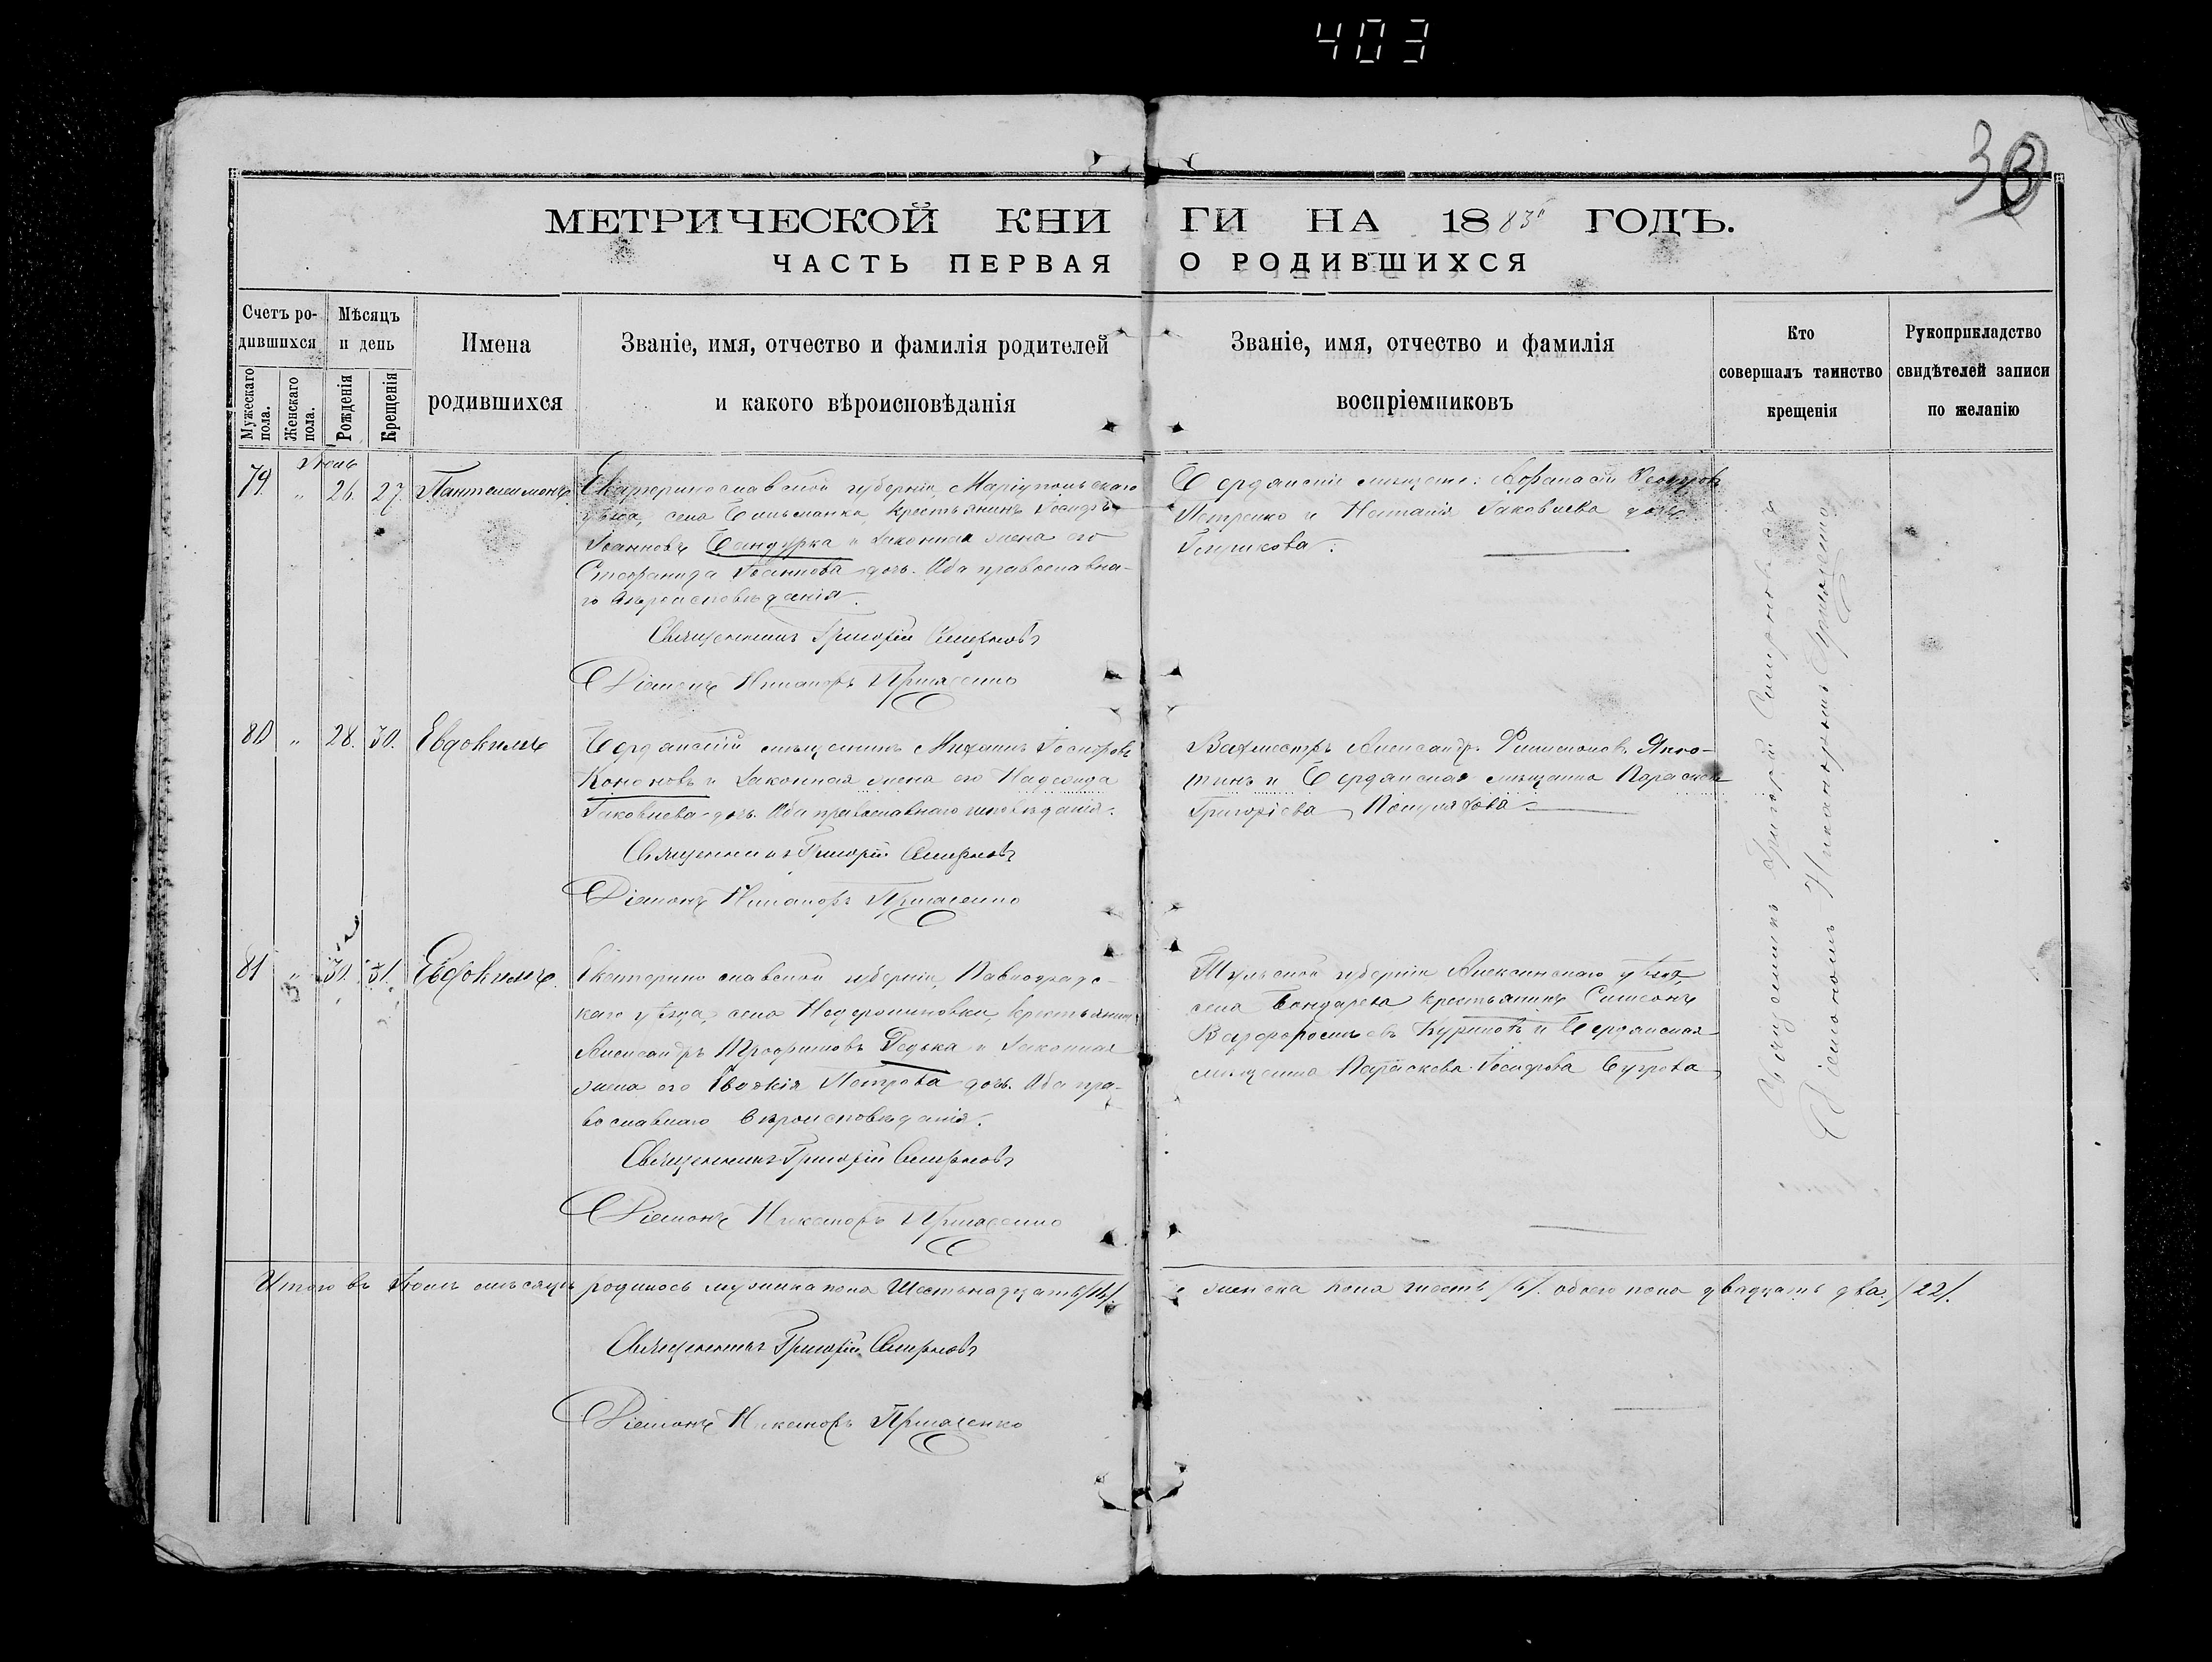 403
33
МЕТРИЧЕСКОЙ КНИ ГИ НА 1883й ГОДЪ.
ЧАСТЬ ПЕРВАЯ О РОДИВШИХСЯ
Счетъ родившихся
Мужескаго пола.
Женскаго пола.
Мѣсяцъ и день
Рожденія
Крещенія
Имена
родившихся
Званіе, имя, отчество и фамилія родителей
и какого вѣроисповѣданія
Званіе, имя, отчество и фамилія
воспріемниковъ
Кто
совершалъ таинство
крещенія
Рукоприкладство
свидѣтелей записи
по желанію
Іюль
79. " 26. 27. Пантелеимонъ
Екатеринославской губерніи, Маріупольскаго
уѣзда, села крестьянинъ Іосифъ
Іоанновъ Бандурка и законная жена его
Стефанида Іоаннова дочь. Оба православна-
го вѣроисповѣданія.
Священникъ Григорій Смирновъ
Діаконъ Никаноръ
Бердянскіе мѣщане: Афанасій
Петренко и Наталія Іаковлева дочь
80 " 28. 30. Евдокимъ
Бердянскій мѣщанинъ Михаилъ Іосифовъ
Кононовъ и законная жена его Надежда
Іаковлева дочь. Оба православнаго исповѣданія.
Священникъ Григорій Смирновъ
Діаконъ Никаноръ
Вахмистръ Александръ Филимоновъ
и Бердянская мѣщанка Параскева
Григоріева
81 " 30. 31. Евдокимъ
Екатеринославской губерніи, Павлоградс-
каго уѣзда, села крестьянинъ
Александръ Трофимовъ Редька и законная
жена его Евдокія Петрова дочь. Оба пра-
вославнаго вѣроисповѣданія.
Священникъ Григорій Смирновъ
Діаконъ Никаноръ
Тульской губерніи Алексинскаго уѣзда,
села Бондарева крестьянинъ Симеонъ
и Бердянская
мѣщанка Параскева Іосифова
Священникъ Григорій Смирновъ
Діаконъ Никаноръ
Итого въ Іюлѣ мѣсяцѣ родилось мужеска пола Шестьнадцать /16/. и женска пола шесть /6/. обоего пола двадцать два. /22/.
Священникъ Григорій Смирновъ
Діаконъ Никаноръ